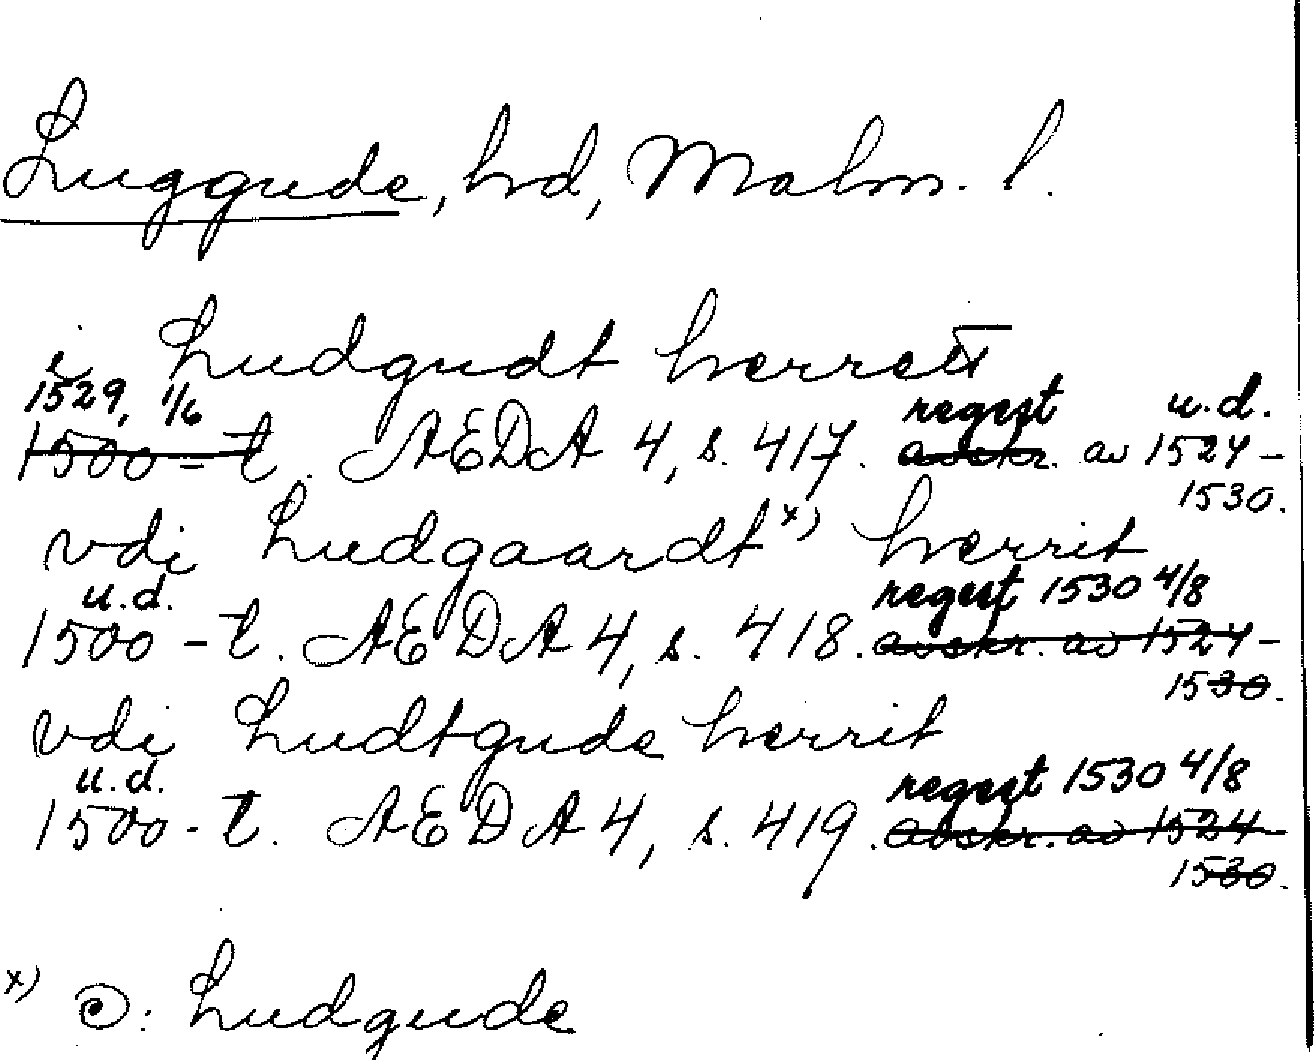 Luggude, hd, Malm. l.
i Ludgudt herrett
1529, 1/6 regest u.d.
1500-t. AEDA 4, s. 417. avskr. av 1524-
1530.
vdi Ludgaardt x) herrit
u.d. regest 1530 4/8
1500-t. AEDA 4, s. 418. avskr. av 1524-
1530.
vdi Ludtgude herrit
u.d. regest 1530 4/8
1500-t. AEDA 4, s. 419. avskr. av 1524-
1530.
x) ɔ: Ludgude